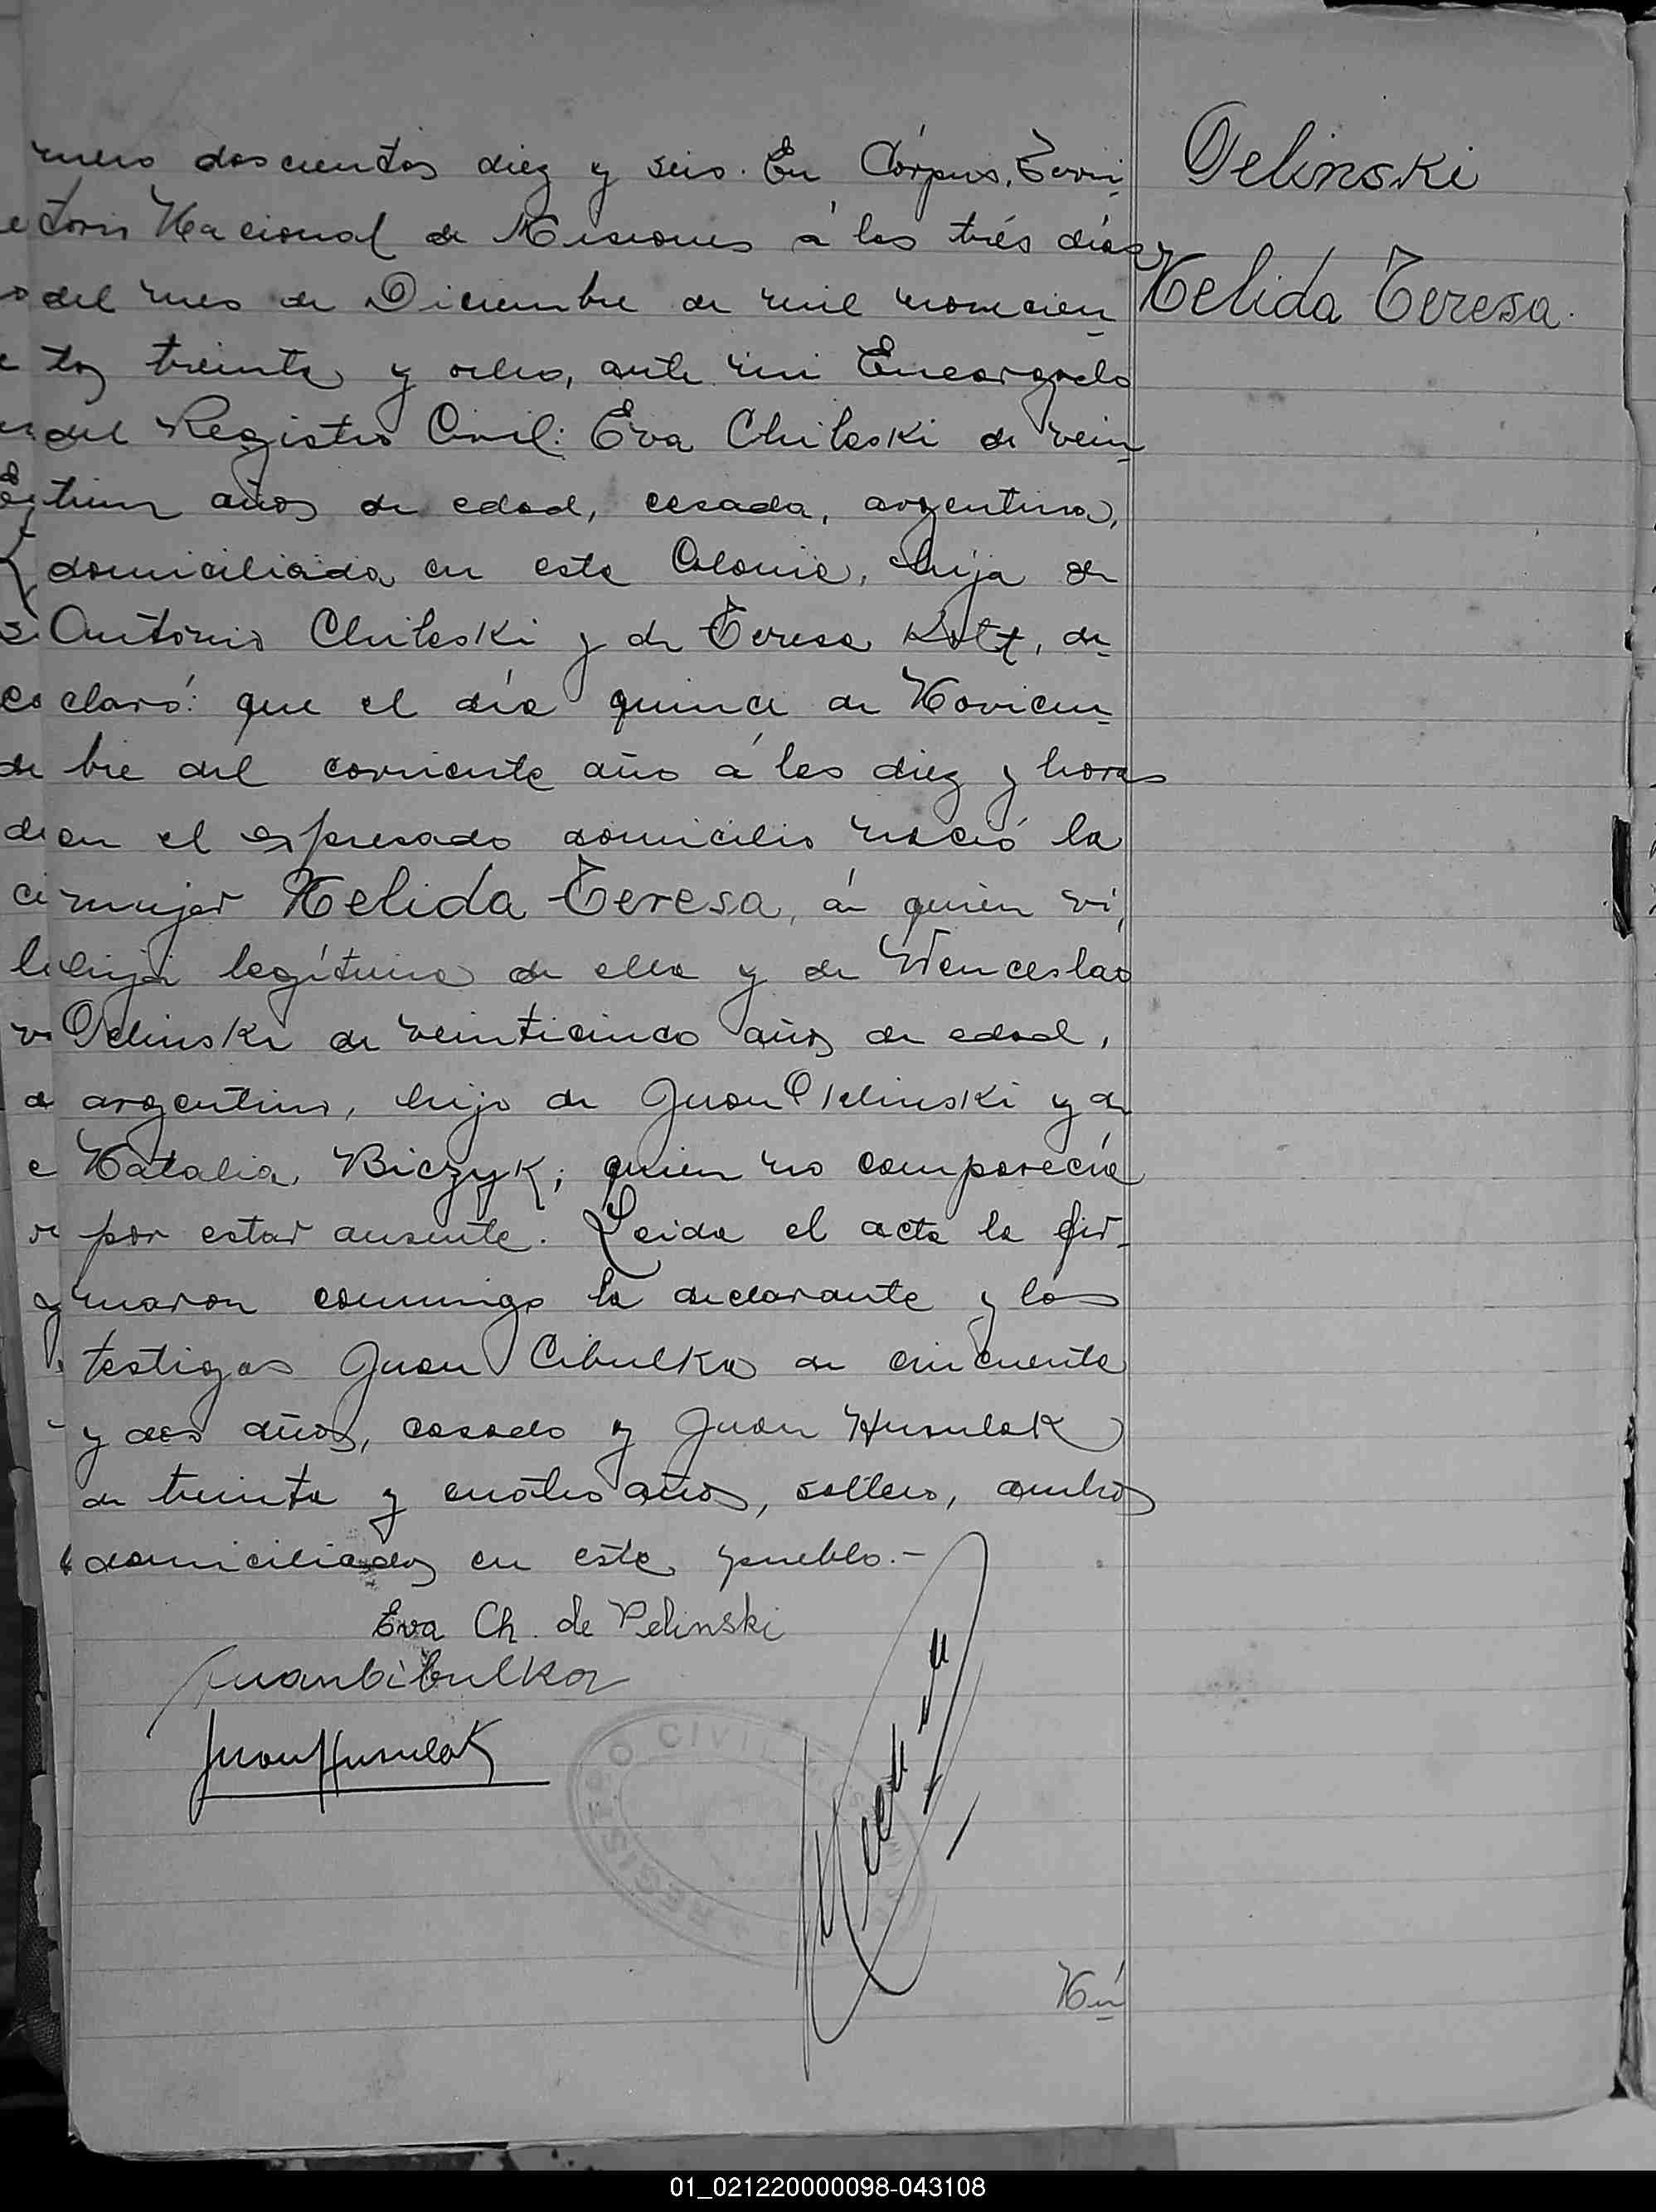 mero doscientos diez y seis. En Córpus, Terri-
torio Nacional de Misiones á los trés dias
del mes de Diciembre de mil novecien-
tos treinta y ocho, ante mi Encargado
del Registro Civil: Eva Chileski de vein-
años de edad, casada, argentina,
domiciliada en esta Colonia, hija de
Antonio Chileski y de Teresa de-
claró: que el día quince de Noviem-
bre del corriente año á las diez y horas
en el espresado domicilio nació la
mujer Nelida Teresa, á quien vi,
hija legítima de ella y de Wenceslao
Pelinski de veinticinco años de edad,
argentino, hijo de Juan Pelinski y de
Natalia Biczyk; quien no comparecía
por estar ausente. Leida el acta la fir-
maron conmigo la declarante y los
testigos Juan Cibulka de cincuenta
y dos años, casado y Juan Husulak
de treinta y cuatro años, soltero, ambos
domiciliados en este pueblo.-
Eva Ch. de Pelinski
Juan Cibulka
Juan Husulak
REGISTRO CIVIL
Nú-
Pelinski
Nelida Teresa.
01_021220000098-043108